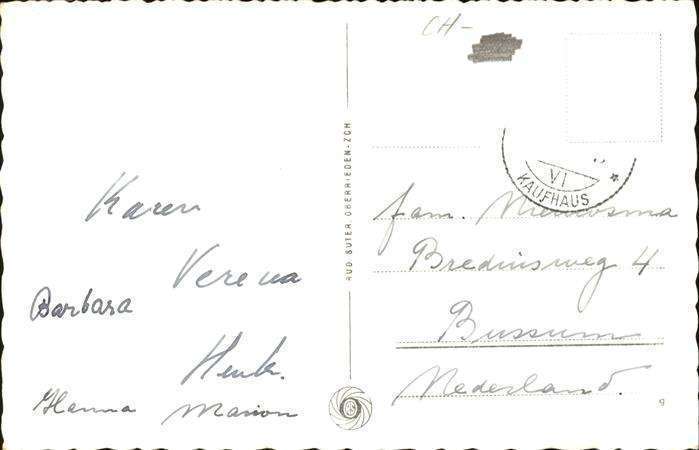 CH-
Karen
Verena
Barbara
Henk.
Hanna Marion
RUD. SUTER OBERRIEDEN-ZCH
VI
KAUFHAUS
fam.
Bredinsweg 4
Bussum
Nederland.
9